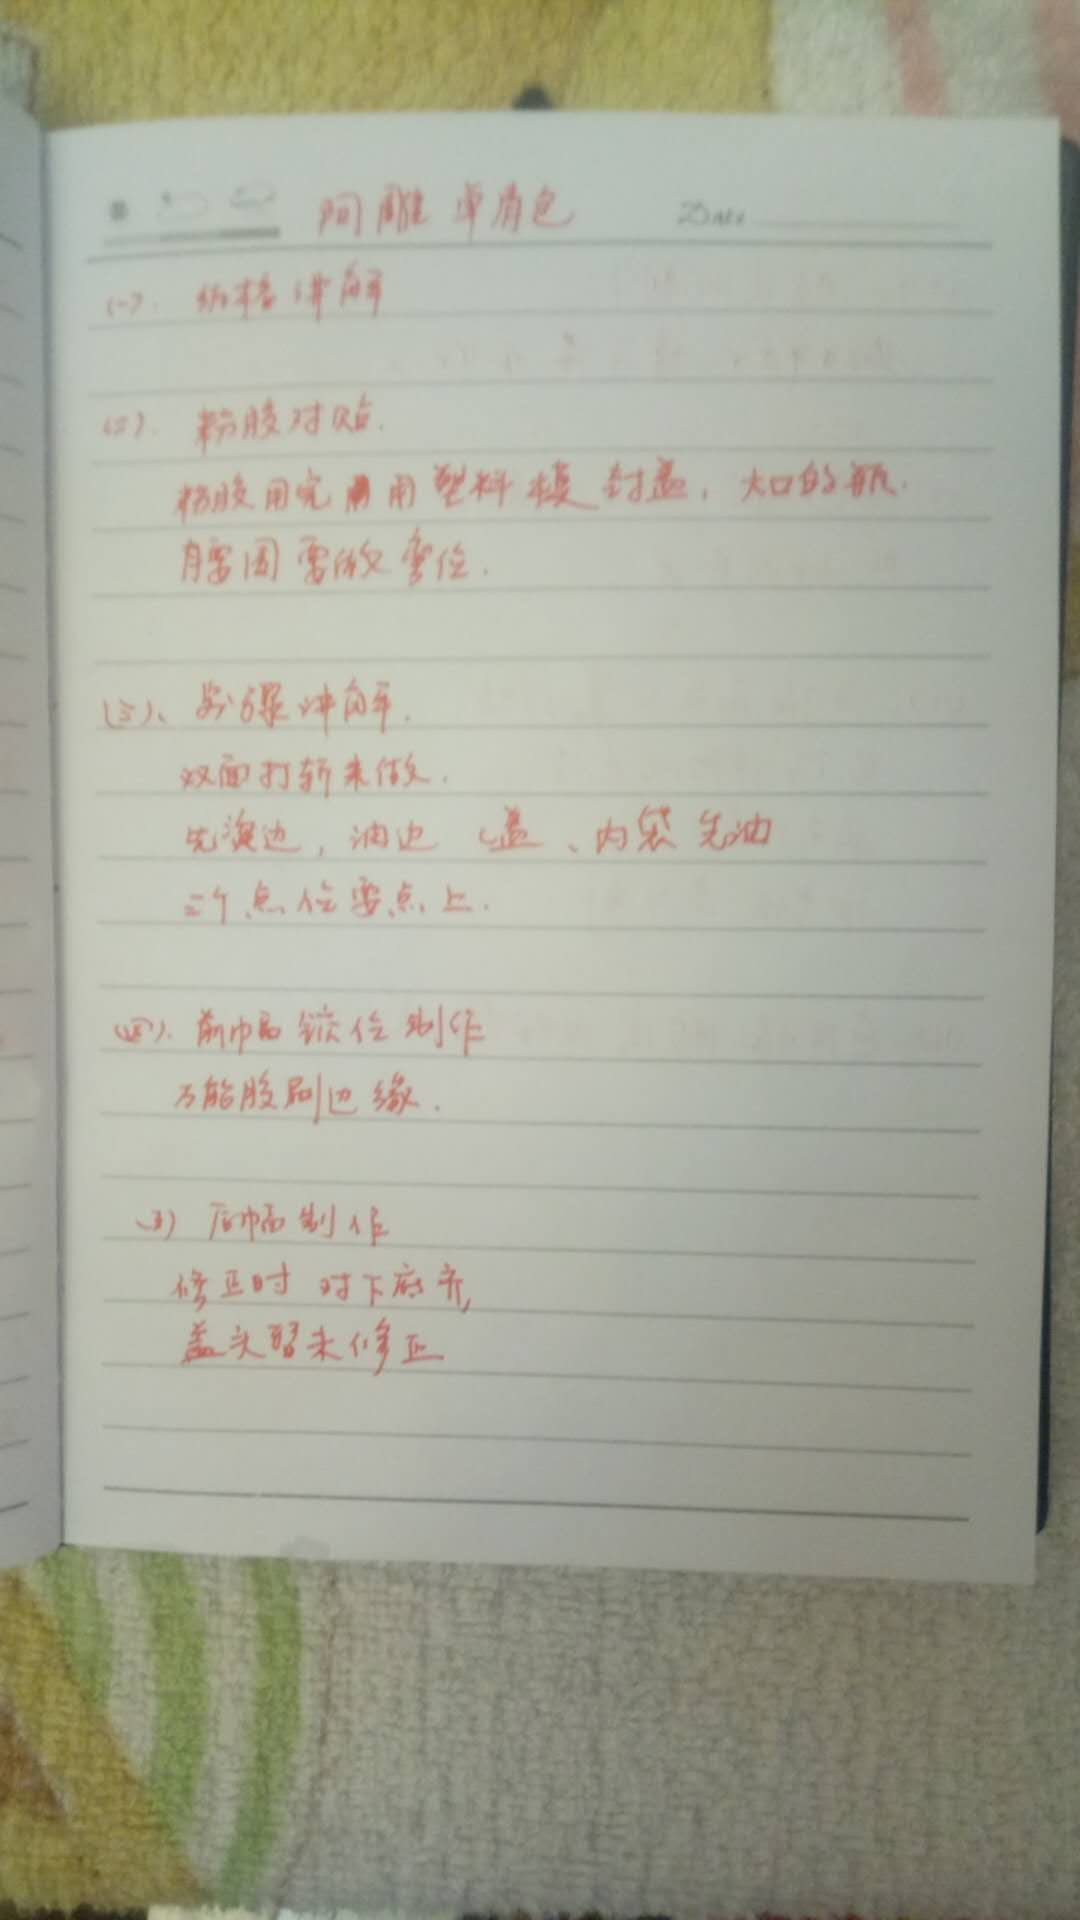 阿雕单肩包
Date
(一). 纸格讲解
(二). 粉胶对贴.
粉胶用完用塑料模封盖, 大口的瓶.
腰围要做变位.
(三)、步骤讲解.
双面打斩来做.
先滚边, 油边 盖、内袋先油
三个点位要点上.
(四). 前幅位制作
万能胶刷边缘.
(五) 后幅制作
修正时 对下底齐,
盖头留来修正